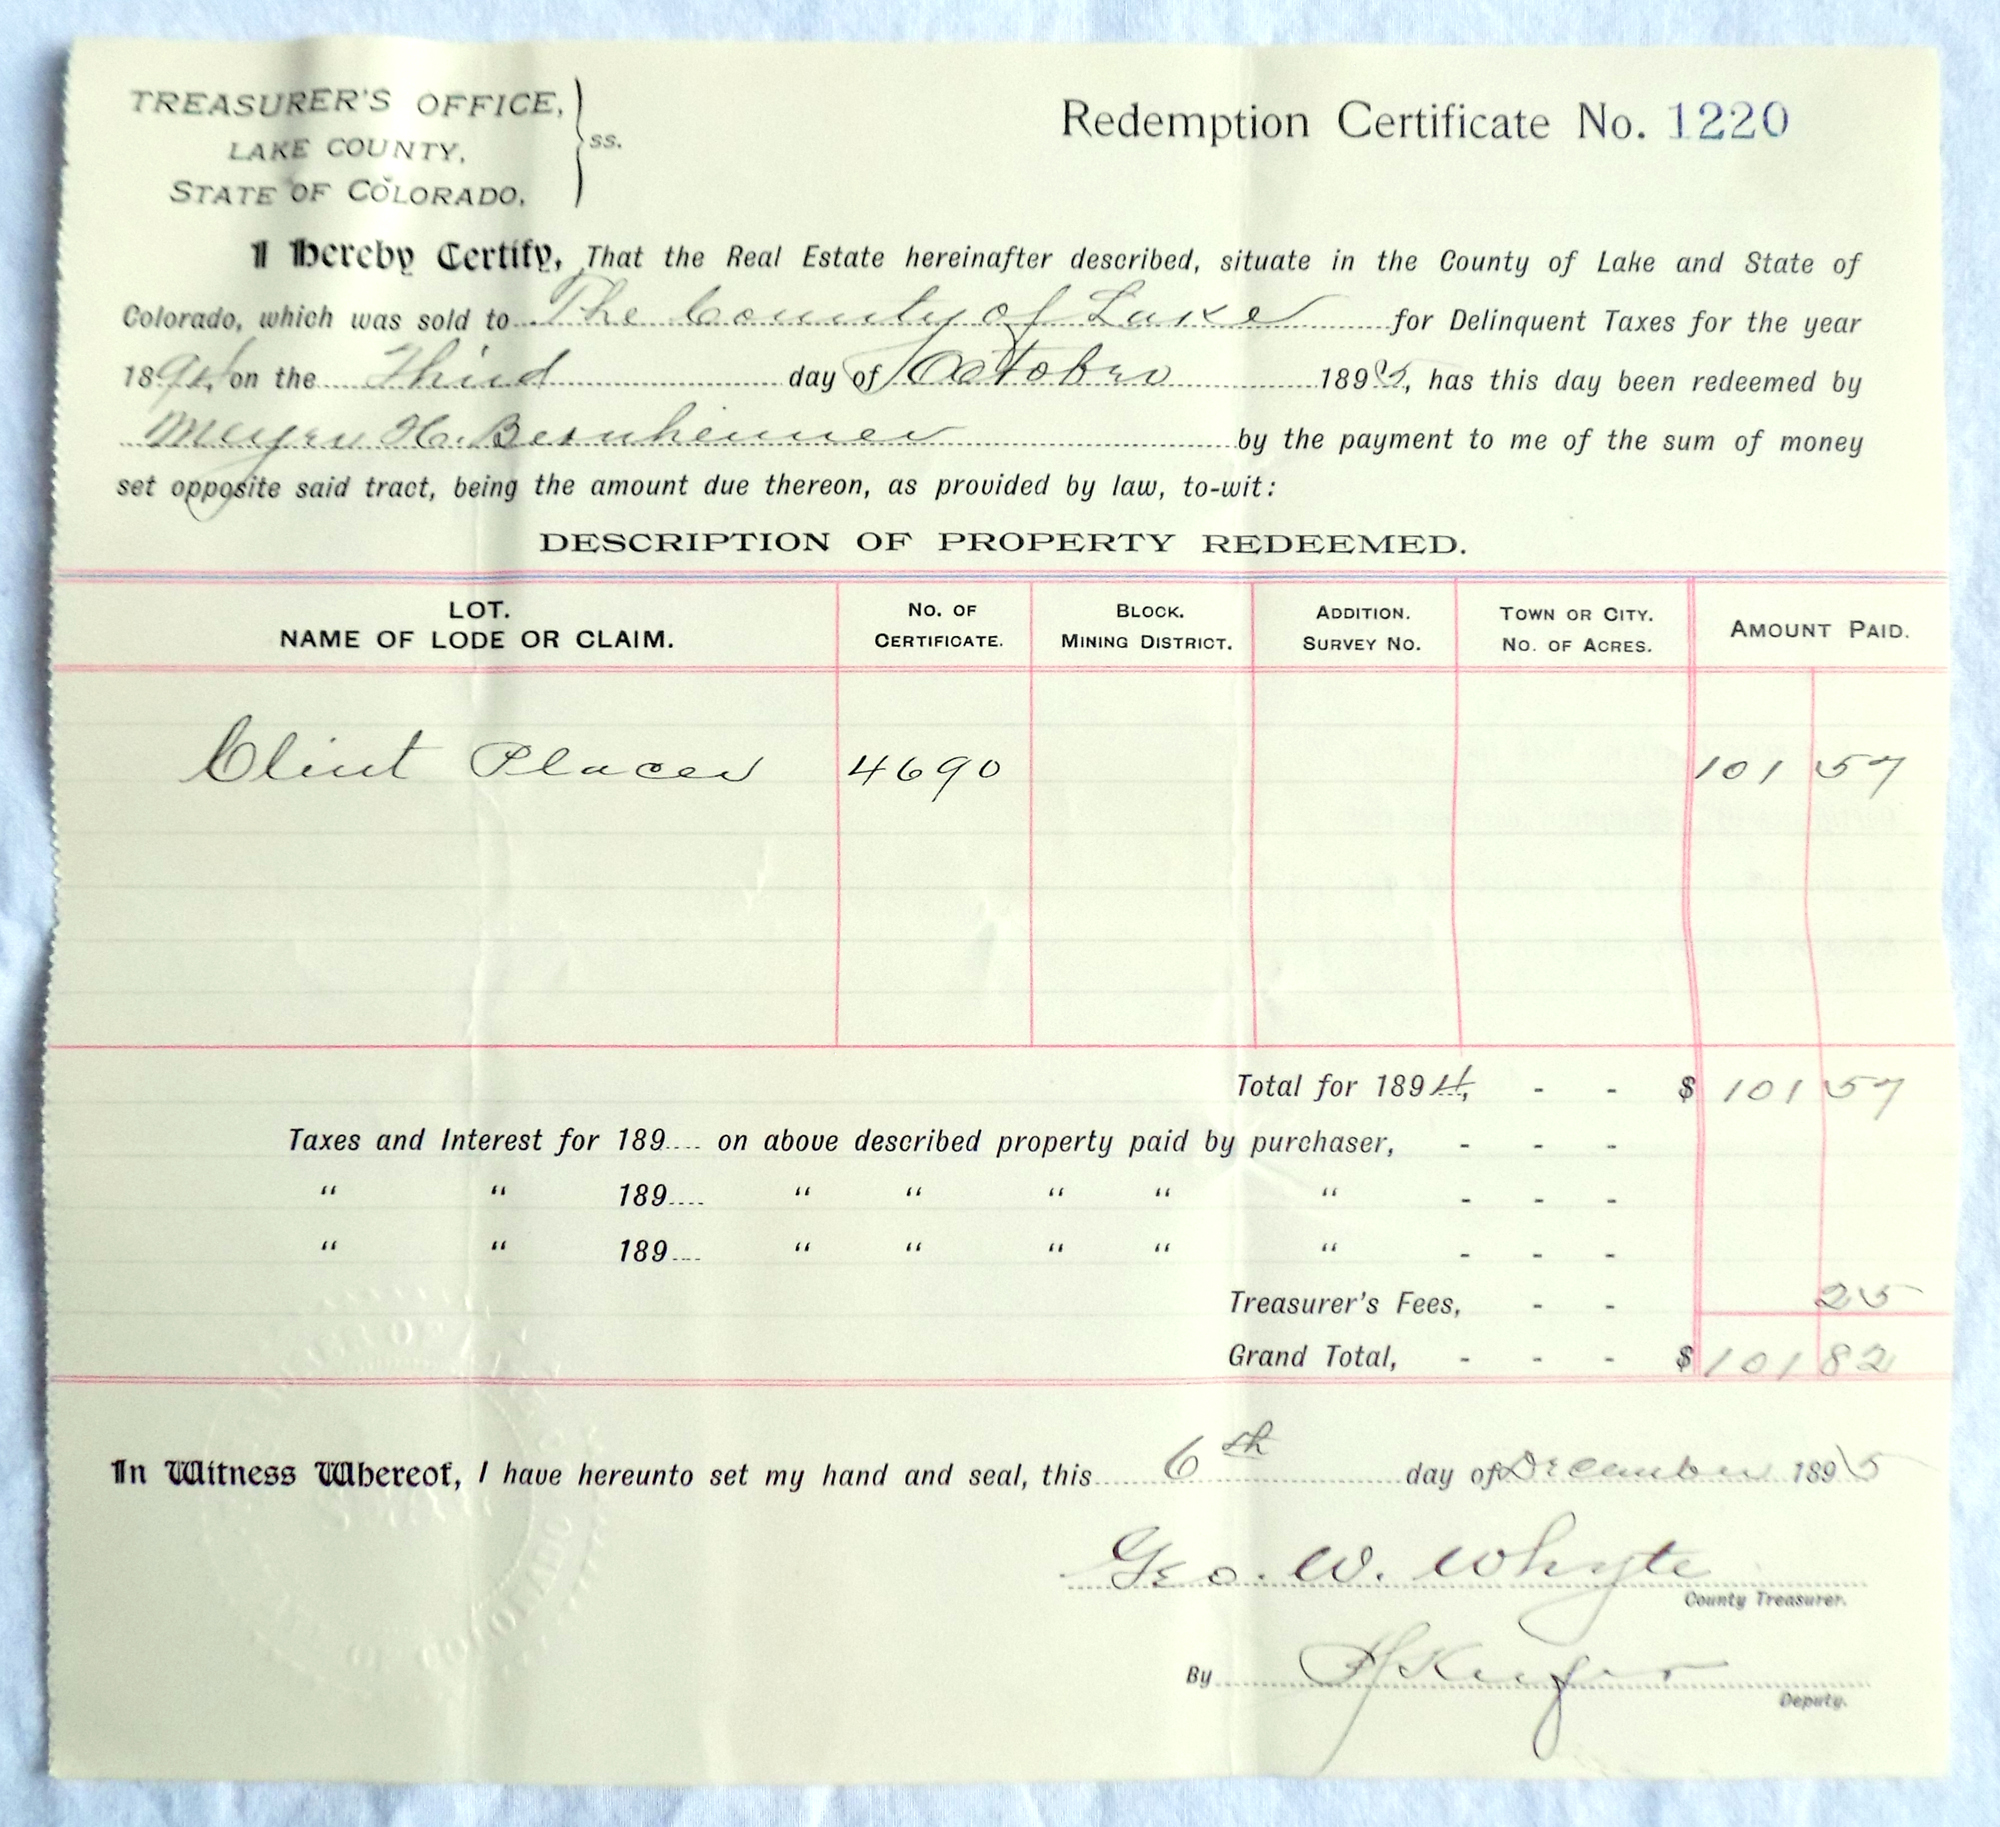 TREASURER'S OFFICE,
LAKE COUNTY, ss.
STATE OF COLORADO,
Redemption Certificate No. 1220
I Hereby Certify, That the Real Estate hereinafter described, situate in the County of Lake and State of
Colorado, which was sold to The County of Lake for Delinquent Taxes for the year
1894, on the Third day of October 1895, has this day been redeemed by
Meyer H. Bernheimer by the payment to me of the sum of money
set opposite said tract, being the amount due thereon, as provided by law, to-wit:
DESCRIPTION OF PROPERTY REDEEMED.
LOT. No. OF BLOCK. ADDITION. TOWN OR CITY. AMOUNT PAID.
NAME OF LODE OR CLAIM. CERTIFICATE. MINING DISTRICT. SURVEY No. No. OF ACRES.
Clint Placer 4690 101 57
Total for 1894, - - $ 101 57
Taxes and Interest for 189.... on above described property paid by purchaser, - - -
" " 189.... " " " " " - - -
" " 189.... " " " " " - - -
Treasurer's Fees, - - 25
Grand Total, - - - $ 101 82
In Witness Whereof, I have hereunto set my hand and seal, this 6th day of December 1895
Geo. W. Whyte
County Treasurer.
By
Deputy.
OF COLORADO